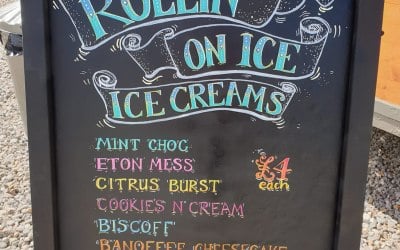 ROLLIN
ON ICE
ICE CREAMS
MINT CHOC
ETON MESS
CITRUS BURST
£4
each
COOKIES N' CREAM
BISCOFF
BANOFFEE CHEESECAKE